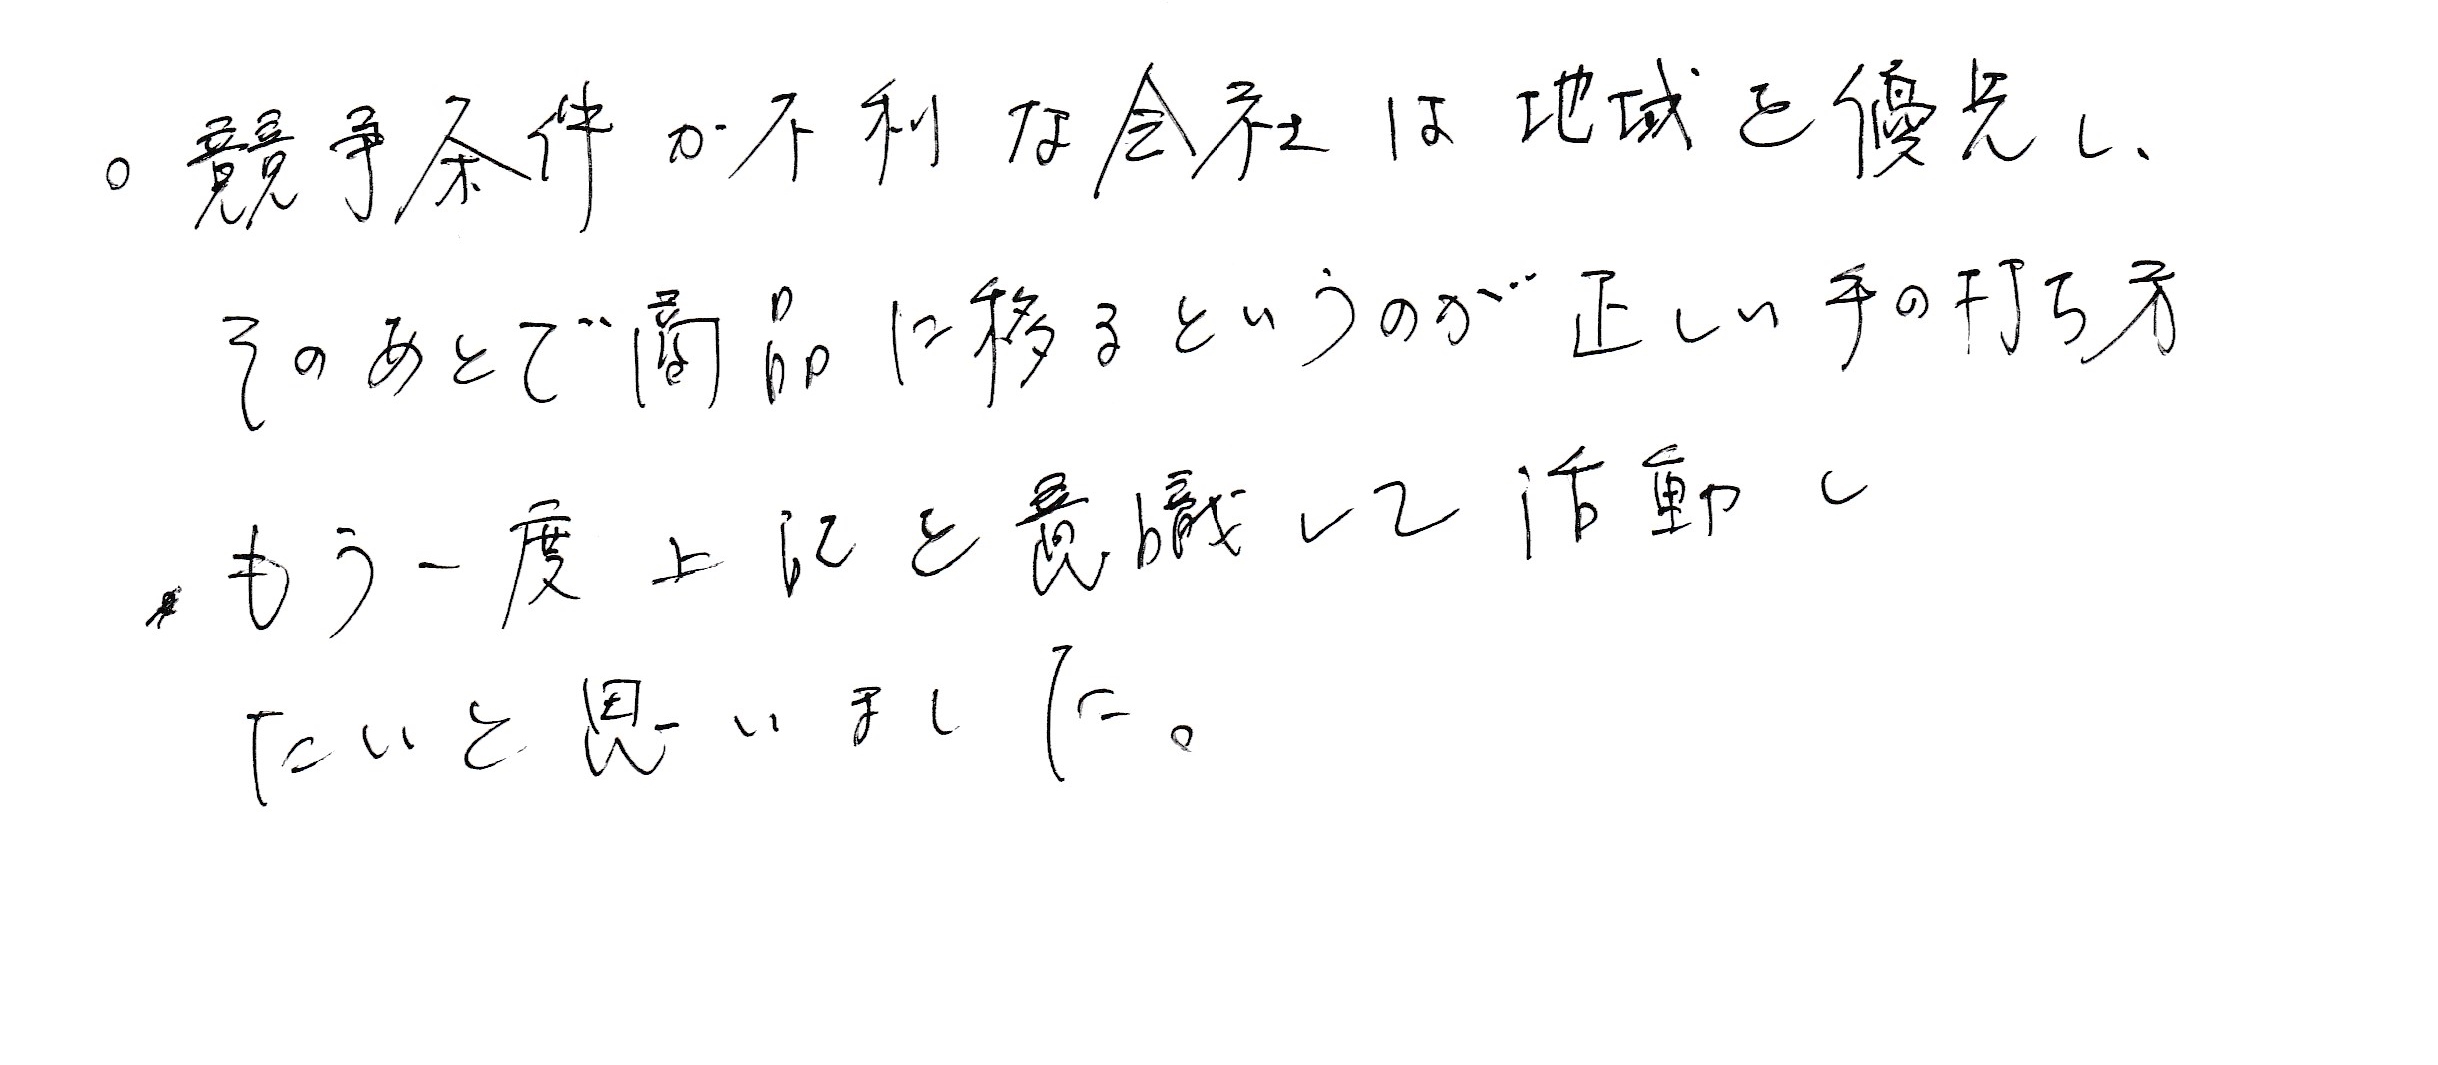 ○ 競争条件が不利な会社は地域を優先し、
そのあとで商品に移るというのが正しい手の打ち方
・もう一度上記を意識して活動し
たいと思いました。